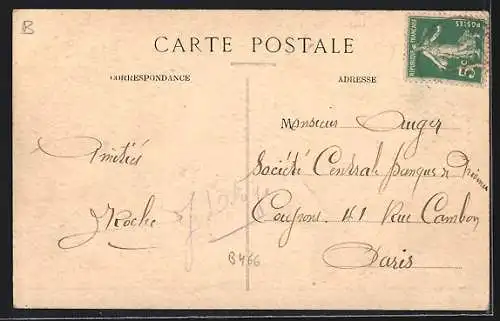 B
CARTE POSTALE
CORRESPONDANCE
ADRESSE
POSTES
RÉPUBLIQUE FRANÇAISE
5c
Monsieur Auger
Société Centrale banques de Province
Coupons. 41 Rue Cambon
Paris
Amitiés
Roche
B466